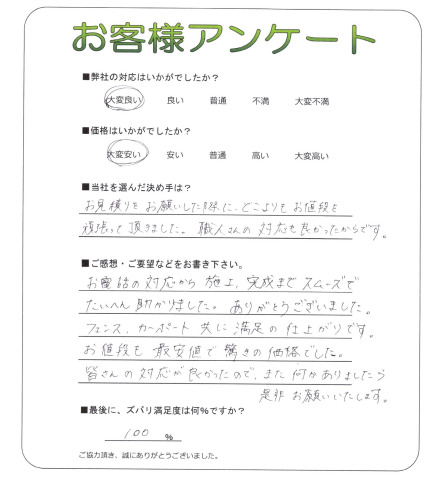 お客様アンケート
■弊社の対応はいかがでしたか？
大変良い 良い 普通 不満 大変不満
■価格はいかがでしたか？
大変安い 安い 普通 高い 大変高い
■当社を選んだ決め手は？
お見積りをお願いした際に、どこよりもお値段を
頑張って頂きました。職人さんの対応も良かったからです。
■ご感想・ご要望などをお書き下さい。
お電話の対応から施工、完成までスムーズで
たいへん助かりました。ありがとうございました。
フェンス、カーポート共に満足の仕上がりです。
お値段も最安値で驚きの価格でした。
皆さんの対応が良かったので、また何かありましたら
是非お願いいたします。
■最後に、ズバリ満足度は何％ですか？
100 ％
ご協力頂き、誠にありがとうございました。